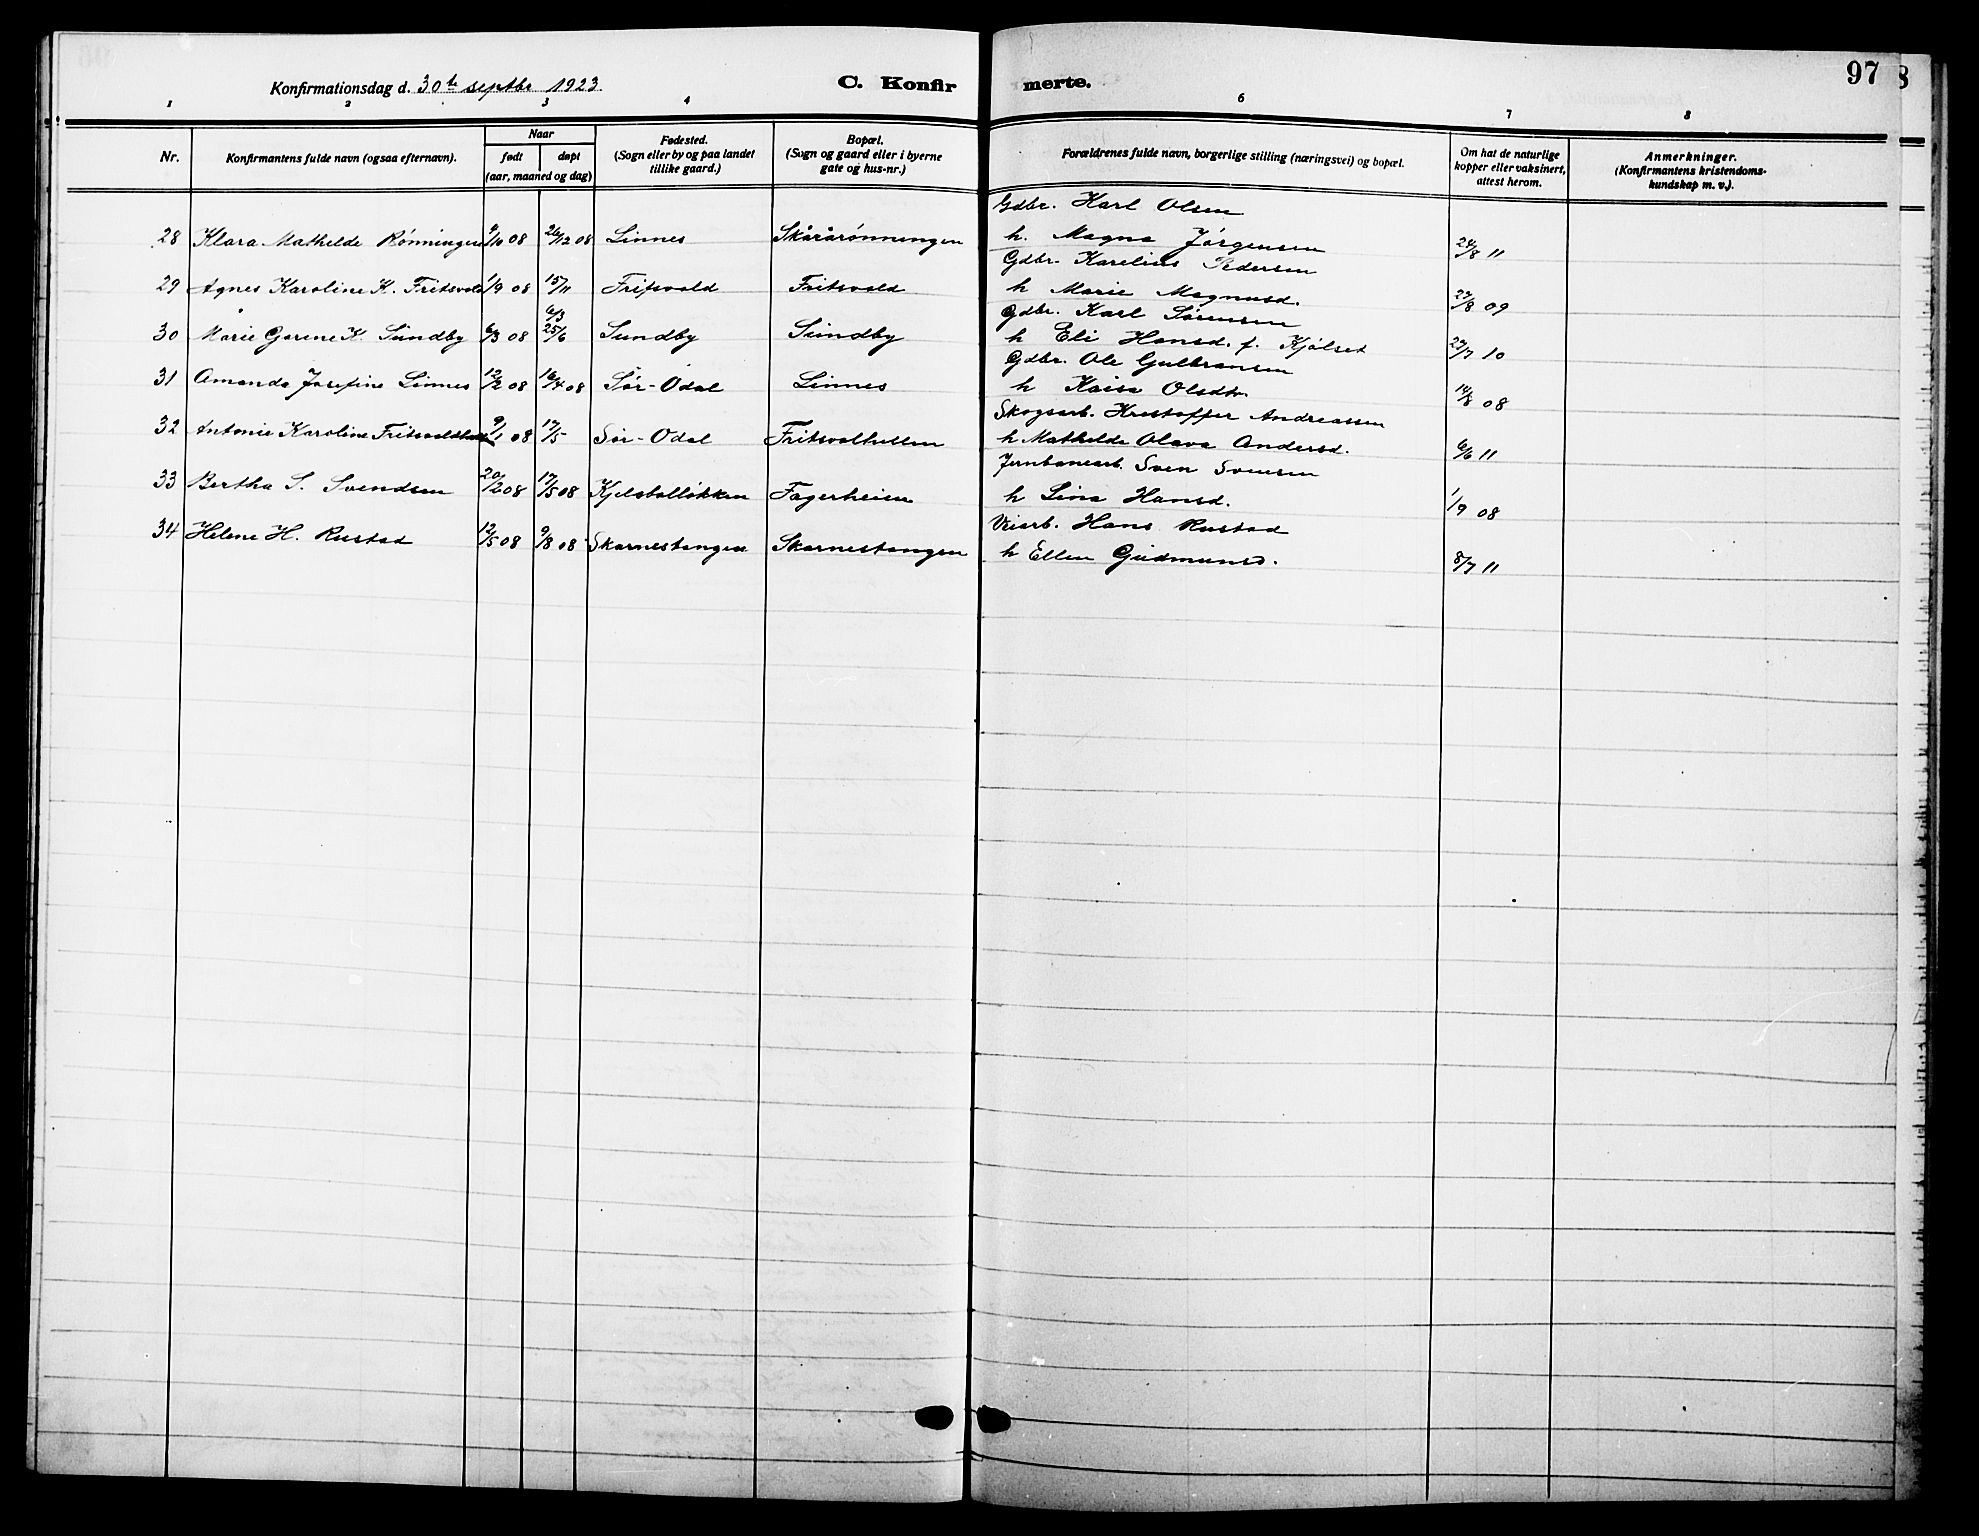 Konfirmationsdag d. 30te septbr 1923.
C. Konfirmerte.
97
1 2 3 4 6 7 8
Nr.
Konfirmantens fulde navn (ogsaa efternavn).
Naar
født døpt
(aar, maaned og dag)
Fødested.
(Sogn eller by og paa landet
tillike gaard.)
Bopæl.
(Sogn og gaard eller i byerne
gate og hus-nr.)
Forældrenes fulde navn, borgerlige stilling (næringsvei) og bopæl.
Om hat de naturlige
kopper eller vaksinert,
attest herom.
Anmerkninger.
(Konfirmantens kristendoms-
kundskap m. v.).
Gdbr. Karl Olsen
28 Klara Mathilde Rønningen 9/10 08 26/12 08 Linnes Skårårønningen h. Magna Jørgensen 24/8 11
Gdbr. Karelius Pedersen
29 Agnes Karoline K. Fritsvold 1/9 08 15/11 Fritsvold Fritsvold h Marie Magnusd. 27/8 09
Gdbr. Karl Sørensen
30 Marie Gorene K. Sundby 6/3 08 25/6 Sundby Sundby h Eli Hansd. f. Kjølset 27/7 10
Gdbr. Ole Gulbransen
31 Amanda Josefine Linnes 12/2 08 16/4 08 Sør-Odal Linnes h Kaisa Olsdtr. 14/8 08
Skogsarb. Kristoffer Andreassen
32 Antonie Karoline 9/1 08 17/5 Sør-Odal Fritsvolhullen h Mathilde Olava Andersd. 6/6 11
Jernbanearb. Sven Svensen
33 Bertha S. Svendsen 20/2 08 17/5 08 Kjelstalløkken Fagerheien h Lina Hansd. 1/9 08
Veiarb. Hans Rustad
34 Helene H. Rustad 12/5 08 9/8 08 Skarnestangen Skarnestangen h Ellen Gudmunsd. 8/7 11